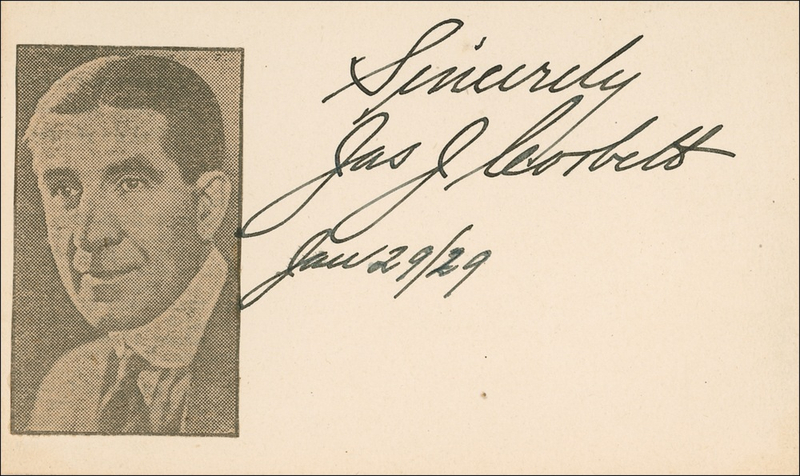 Sincerely
Jas J Corbett
Jan 29/29